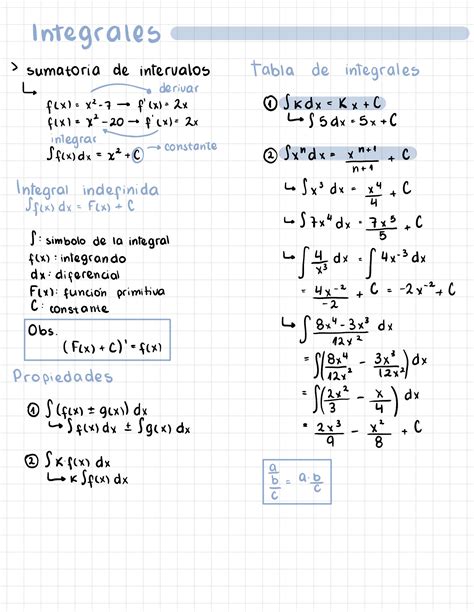 Integrales
> sumatoria de intervalos
derivar
f(x) = x²-7 → f'(x) = 2x
f(x) = x²-20 → f'(x) = 2x
integrar
∫f(x)dx = x² + C → constante
Integral indefinida
∫f(x) dx = F(x) + C
∫: simbolo de la integral
f(x): integrando
dx: diferencial
F(x): función primitiva
C: constante
Obs.
(F(x) + C)' = f(x)
Propiedades
① ∫(f(x) ± g(x)) dx
↳ ∫f(x) dx ± ∫g(x) dx
② ∫K·f(x) dx
↳ K ∫f(x) dx
Tabla de integrales
① ∫K dx = Kx + C
↳ ∫5dx = 5x + C
② ∫xⁿ dx = xⁿ⁺¹/n+1 + C
↳ ∫x³ dx = x⁴/4 + C
↳ ∫7x⁴ dx = 7x⁵/5 + C
↳ ∫4/x³ dx = ∫4x⁻³ dx
= 4x⁻²/-2 + C = -2x⁻² + C
↳ ∫8x⁴ - 3x³/12x² dx
= ∫(8x⁴/12x² - 3x³/12x²) dx
= ∫(2x²/3 - x/4) dx
= 2x³/9 - x²/8 + C
a/b/c = a·b/c